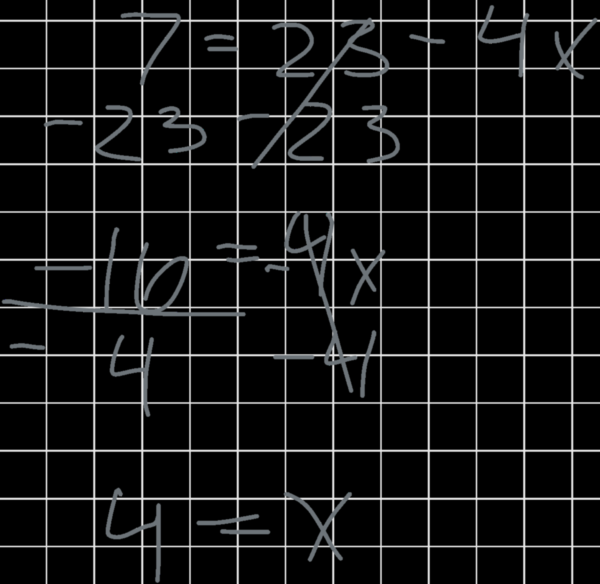 7 = 23 - 4x
-23 -23
-16 = -4x
-4 -4
4 = x